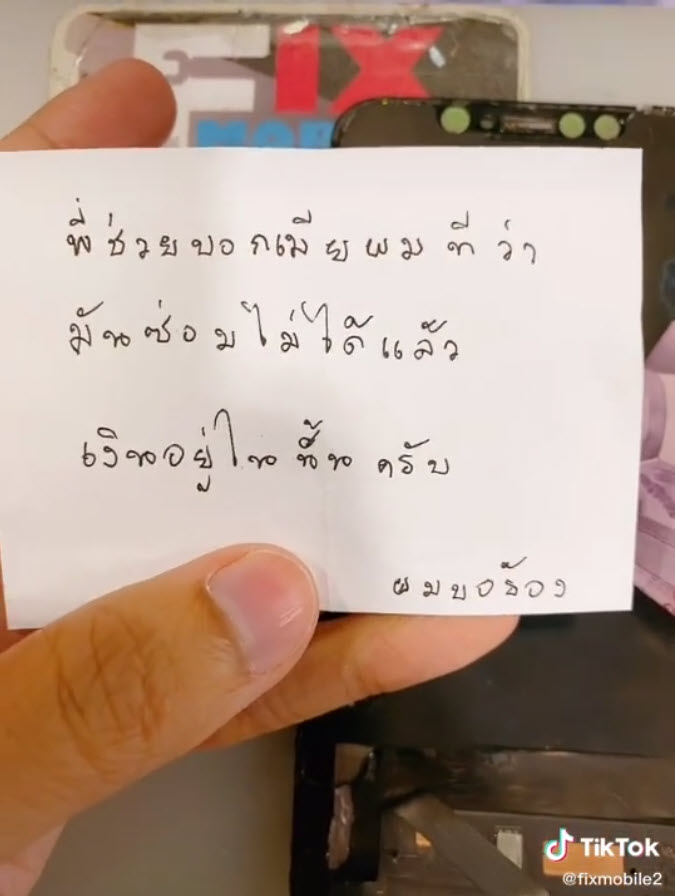 FIX
พี่ช่วยบอกเมียผมทีว่า
มันซ่อมไม่ได้แล้ว
เงินอยู่ในนั้นครับ
ผมขอร้อง
TikTok
@fixmobile2